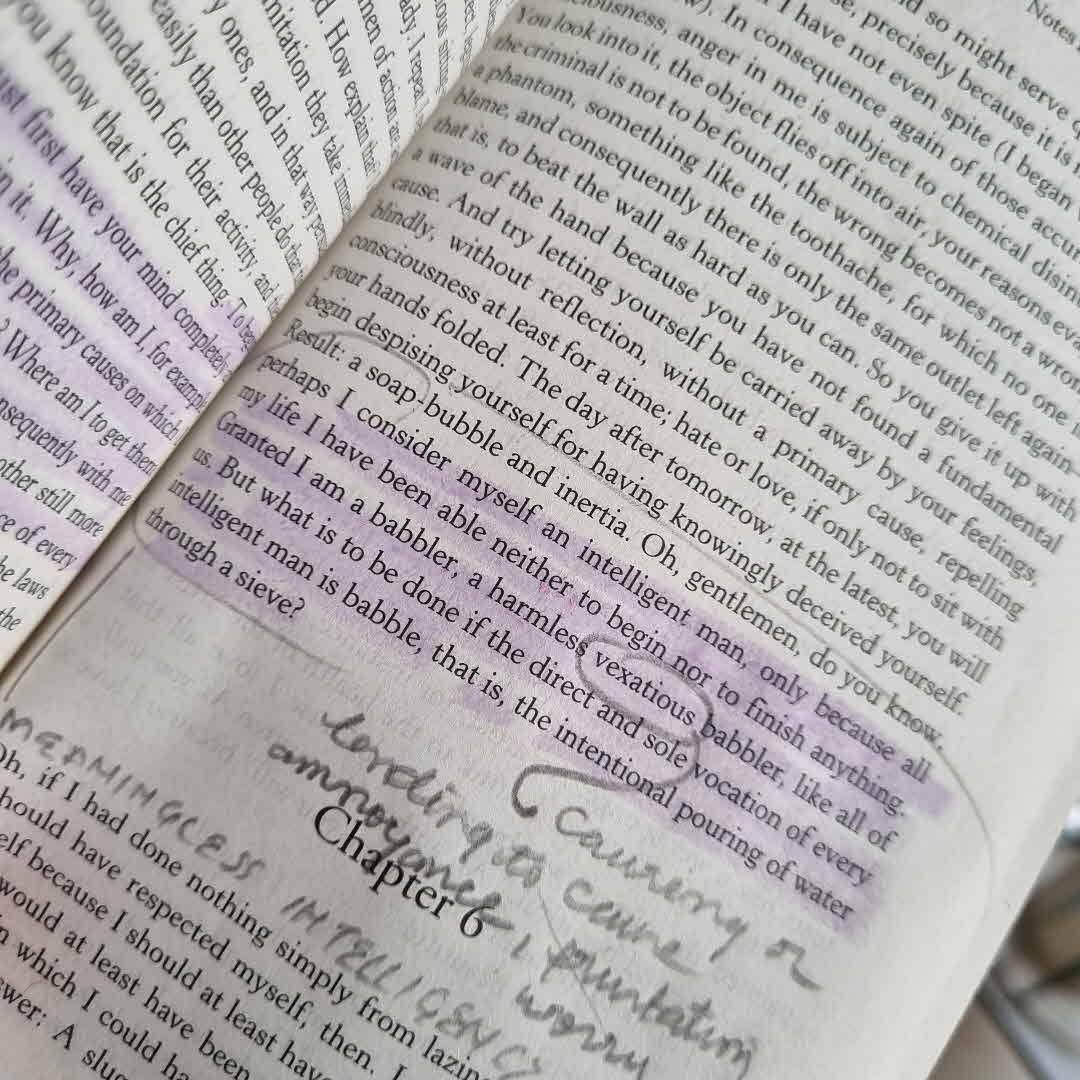 ady, I repeat
men of action are
d. How explain that
mitation they take imm
y ones, and in that way pers
easily than other people do tha
oundation for their activity, and
you know that is the chief thing. To be
ust first have your mind completely
in it. Why, how am I, for example
he primary causes on which
? Where am I to get them
nsequently with me
other still more
ce of every
he laws
the
Notes
d so might serve q
se, precisely because it is
I have not even spite (I began
w). In consequence again of those accur
iousness, anger in me is subject to chemical disin
You look into it, the object flies off into air, your reasons eva
the criminal is not to be found, the wrong becomes not a wron
a phantom, something like the toothache, for which no one
blame, and consequently there is only the same outlet left again—
that is, to beat the wall as hard as you can. So you give it up with
a wave of the hand because you have not found a fundamental
cause. And try letting yourself be carried away by your feelings,
blindly, without reflection, without a primary cause, repelling
consciousness at least for a time; hate or love, if only not to sit with
your hands folded. The day after tomorrow, at the latest, you will
begin despising yourself for having knowingly deceived yourself.
Result: a soap-bubble and inertia. Oh, gentlemen, do you know,
perhaps I consider myself an intelligent man, only because all
my life I have been able neither to begin nor to finish anything.
Granted I am a babbler, a harmless vexatious babbler, like all of
us. But what is to be done if the direct and sole vocation of every
intelligent man is babble, that is, the intentional pouring of water
through a sieve?
causing or
tending to cause
annoyance, frustration
worry
MEANINGLESS INTELLIGENCY
Chapter 6
Oh, if I had done nothing simply from lazine
hould have respected myself, then. I
elf because I should at least have
would at least have been
n which I could ha
swer: A slug